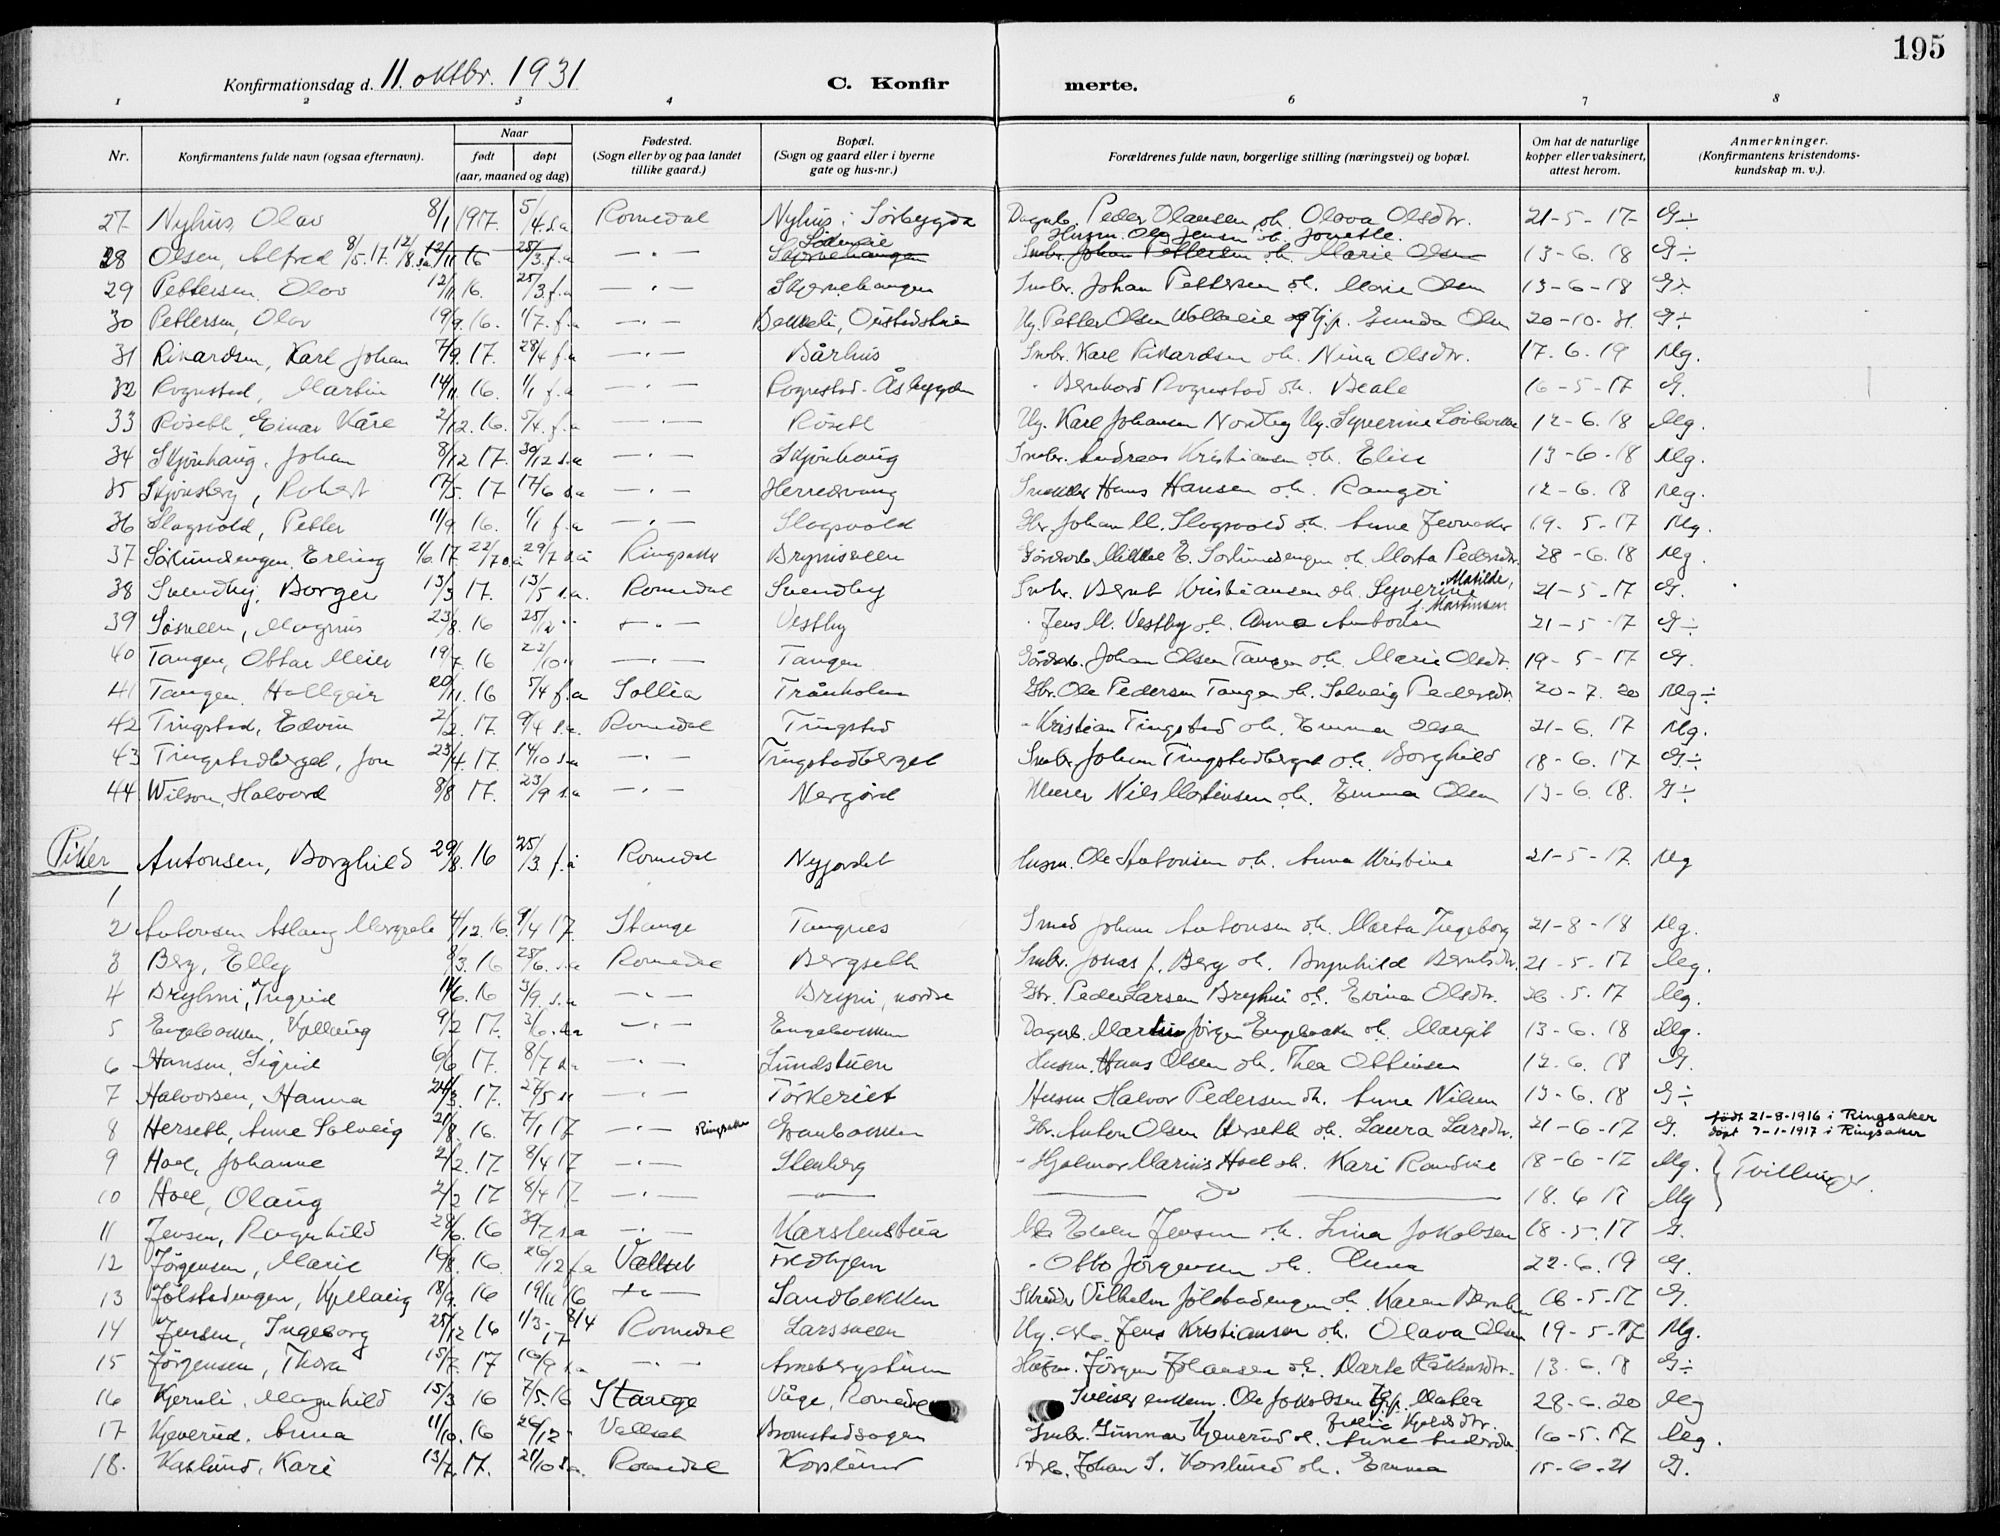 195
Konfirmationsdag d. 11. oktbr. 1931 C. Konfirmerte.
1 2 3 4 5 6 7 8
Nr. Konfirmantens fulde navn (ogsaa efternavn). Naar født døpt (aar, maaned og dag) Fødested. (Sogn eller by og paa landet tillike gaard.) Bopæl. (Sogn og gaard eller i byerne gate og hus-nr.) Forældrenes fulde navn, borgerlige stilling (næringsvei) og bopæl. Om hat de naturlige kopper eller vaksinert, attest herom. Anmerkninger. (Konfirmantens kristendomskundskap m. v.).
27 Nyhus, Olav 8/1 1917. 5/4 s.a Romedal Nyhus i Sørbygda Dagarb. Peder Olausen oh. Olava Olsdtr. 21-5-17 G÷
28 Olsen, Alfred 8/5.17. 12/8 s.a 12/11 16 25/3 f.a —"— Skjærnehaugen Husm. Olaf Jensen oh. Jonette. Smbr. Johan Pettersen oh. Marie Olsen 13-6.18 G÷
29 Pettersen, Olav 12/11 16. 25/3 f.a —"— Skjærnehaugen Smbr. Johan Pettersen oh. Marie Olsen 13-6-18 G÷
30 Pettersen, Olav 19/9.16. 1/7. f.a —"— Ug. Petter Olsen og Gunda Olsen 20-10-31. G÷
31 Rikardsen, Karl Johan 7/9.17. 28/4 f.a —"— Bårhus Smbr. Karl Rikardsen oh. Nina Olsdtr. 17.6.19 Mg.
32 Rognstad, Martin 14/11.16. 1/1 f.a —"— Rognstad - Åsbygda " Bernhard Rognstad oh. Beate 16-5-17 G.
33 Röseth, Einar Kåre 2/12.16. 5/4. f.a —"— Röseth Ug. Karl Johansen Nordby Ug. Syverine 12-6.18 Mg.
34 Skjönhaug, Johan 8/12 17. 30/12 s.a —"— Skjönhaug Smbr. Andreas Kristiansen oh. Elise 13-6-18 Mg.
35 Skjönsberg, Robert 17/5.17 17/6 s.a —"— Herredsvang Snekker Hans Hansen oh. Rangdi 12-6.18 Mg.
36 Slagsvold, Petter 11/9 16. 1/1 f.a —"— Slagsvold Gbr. Johan M. Slagsvold oh. Anne 19.5-17 Mg.
37 Sörlundengen, Erling 1/6 17 29/7 s.a Ringsaker Brynisveen Gårdsarb. Mikkel E. Sörlundengen oh. Marta Pedersdtr. 28-6.18 Mg.
38 Svendby, Borger 13/3 17. 13/5 s.a. Romedal Svendby Smbr. Bernt Kristiansen oh. Syverine Matilde, 21-5-17 G.
39 Sösveen, Magnus 23/8.16 25/12 " —"— Vestby " Jens M. Vestby oh. Anna 21-5-17 G÷
40 Tangen, Ottar Meier 19/7.16 22/10 " —"— Tangen Gårdsarb. Johan Olsen Tangen oh. Marie Olsdtr. 19-5-17 G.
41 Tangen, Hallgeir 20/11.16 5/4 f.a Sollia Trånholm Gbr. Ole Pedersen Tangen oh. Solveig Pedersdtr. 20-7.20 Mg÷
42 Tingstad, Edvin 2/2.17. 9/4 s.a. Romedal Tingstad " Kristian Tingstad oh. Emma Olsen 21-6.17 Mg.
43 Tingstadberget, Jon 23/4.17. 14/10 s.a —"— Tingstadberget Smbr. Johan Tingstadberget oh. Borghild 18-6.17 G÷
44 Wilson, Halvard 8/8 17. 23/9 s.a —"— Nergård Murer Nils Martinsen oh. Emma Olsen 13-6.18. G÷
Piker
1 Antonsen, Borghild 29/8.16 25/3 f.å Romedal Nyjordet Husm. Ole Antonsen oh. Anna Kristine 21-5-17. Mg
2 Antonsen Aslaug Margrete 4/12.16. 9/4 17. Stange Tangnes Smed Johan Antonsen oh. Marta Ingeborg 21-8-18 Mg.
3 Berg, Elly 8/3.16 25/6. s.a Romedal Bergseth Smbr. Jonas J. Berg oh. Brynhild Berntsdtr. 21-5-17 Mg.
4 Bryhni, Ingrid 14/6.16 3/9 s.a —"— Bryni, nordre Gbr. Peder Larsen Bryhni oh. Evina Olsdtr. 26.5.17 Mg.
5 Engebakken, Kjellaug 9/2 17. 3/6. s.a —"— Engebakken Dagarb. Martin Jörgen Engebakken oh. Margit 13-6.18 Mg.
6 Hansen, Sigrid 6/6 17. 8/7 s.a —"— Lundstuen Husm. Hans Olsen oh. Thea Ottinsen 12.6.18 G.
7 Halvorsen, Hanna 24/3.17. 27/5 s.a —"— Törkeriet Husm Halvor Pedersen oh. Anne Nilsen 13-6.18 G÷
8 Herseth, Anne Solveig 21/8.16. 7/1 17 —"— Ringsaker Granbakken Gbr. Anton Olsen Herseth oh. Laura Larsdtr. 21-6-17 G. født 21-8-1916 i Ringsaker døpt 7-1-1917 i Ringsaker
9 Hoel, Johanne 2/2.17. 8/4 17 —"— Stenberg " Hjalmar Marius Hoel oh. Kari Randine 18-6-17 Mg. Tvillinger.
10 Hoel, Olaug 2/2 17 8/4 17 —"— —"— — do — 18.6 17 Mg
11 Jensen, Ragnhild 28/6.16 30/7 s.a —"— Karstenstua Jensen oh. Lina Jakobsen 18-5.17 G.
12 Jörgensen, Marie 16/8.16. 26/12 f.a Vallset Fredhjem " Otto Jörgensen oh. Anna 22-6.19 G.
13 Jölstadengen, Kjellaug 18/9.16 19/11 16 —"— Sandbekken Vilhelm Jölstadengen oh. Karen 16-5.17 G.
14 Jensen, Ingeborg 25/12 16 1/3-17 8/4 Romedal Larssveen Jens Kristiansen oh. Olava Olsen 19-5.17 Mg.
15 Jörgensen, Thora 15/7.17 16/9 s.a —"— Arnebergstuen Husm. Jörgen Johansen oh. Marte Håkensdtr. 13-6.18 G÷
16 Kjernli, Magnhild 15/3 16 7/5.16 Stange Våge, Romedal Ole Jakobsen og Matea 28-6.20 Mg
17 Kjeverud, Anna 11/10.16 26/12 " Vallset Bromstadsagen Smbr. Gunnar Kjeverud oh. 16-5.17 Mg.
18. Korslund, Kari 13/7.17. 28/10 s.a. Romedal Korslund Johan S. Korslund oh. Emma 15-6-21 G.